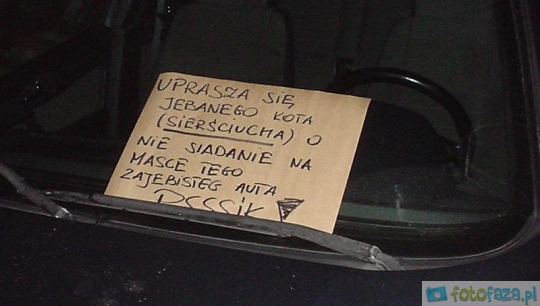 UPRASZA SIĘ
JEBANEGO KOTA
(SIERŚCIUCHA) O
NIE SIADANIE NA
MASCE TEGO
ZAJEBISTEG AUTA
fotofaza.pl